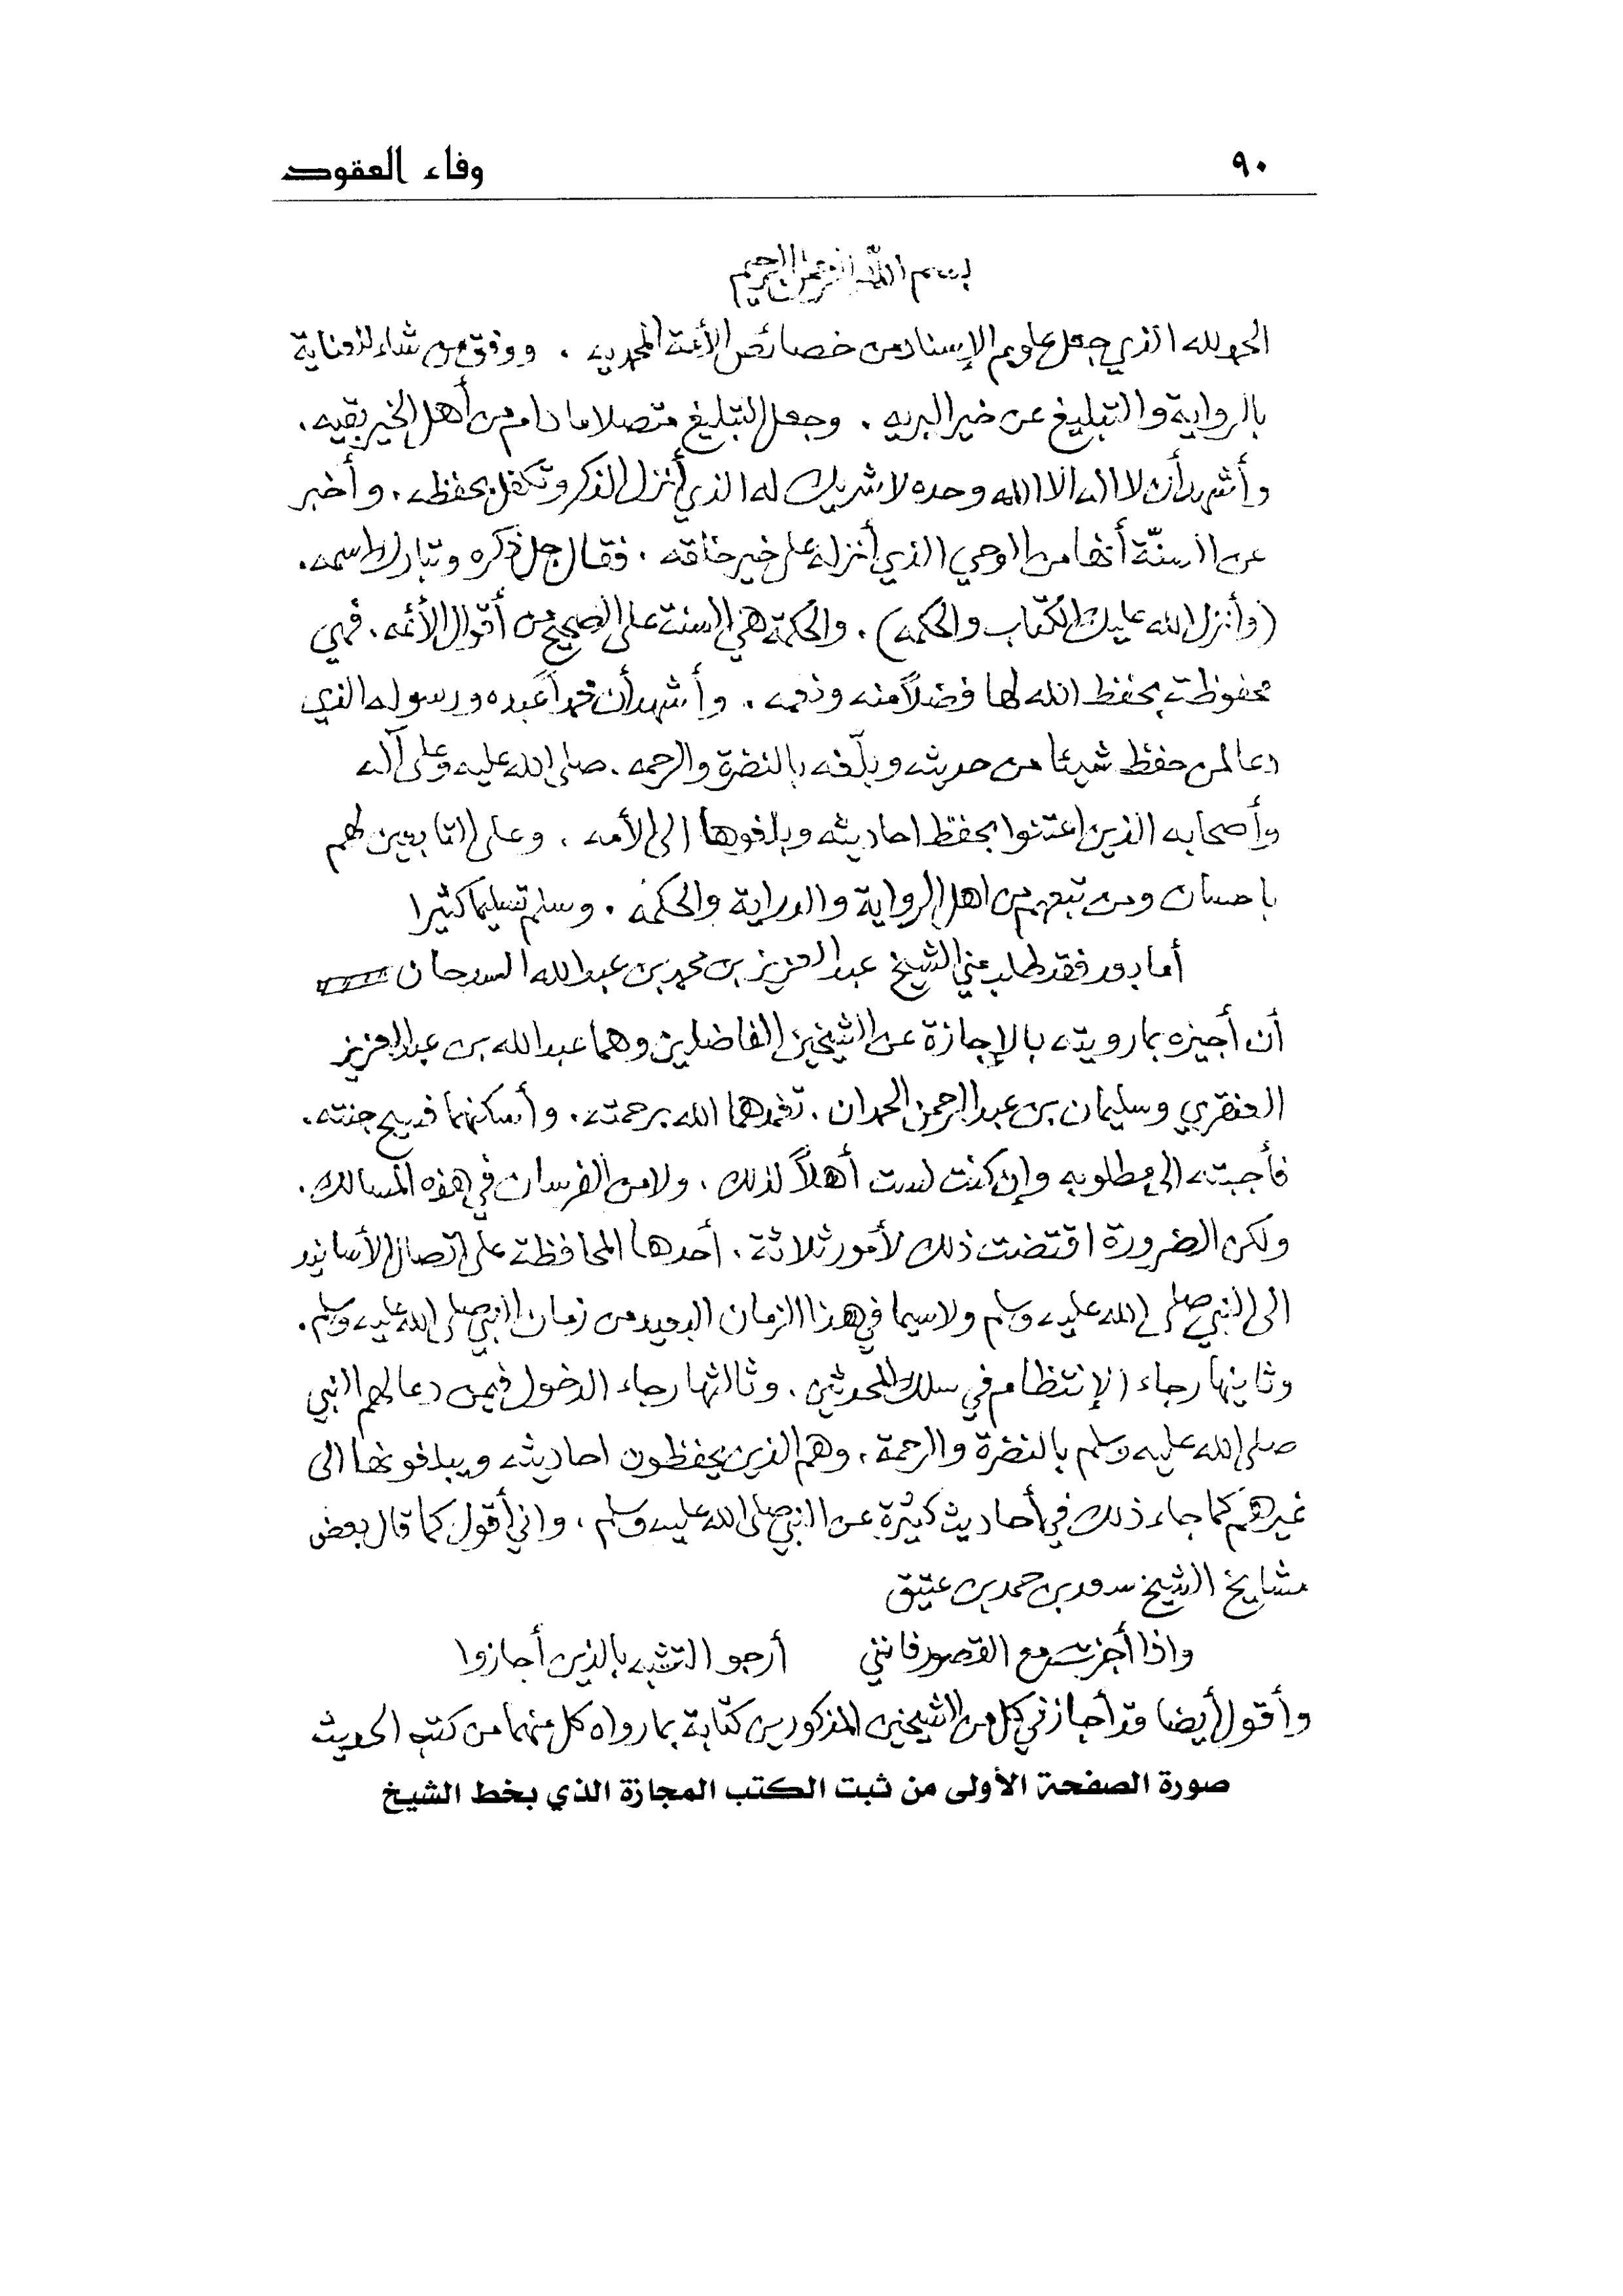 ٩٠ وفاء العقود
بسم الله الرحمن الرحيم
الحمد لله الذي جعل علوم الإسناد من خصائص الأمة المحمديه . ووفق من شاء للعناية
بالرواية والتبليغ عن خير البريه . وجعل التبليغ متصلا ما دام من أهل الخير بقيه .
وأشهد أن لا اله الا الله وحده لا شريك له الذي أنزل الذكر وتكفل بحفظه . وأخبر
عن السنّة أنها من الوحي الذي أنزله على خير خلقه . فقال جل ذكره وتبارك اسمه .
(وأنزل الله عليك الكتاب والحكمه) . والحكمة هي السنة على الصحيح من أقوال الأئمه . فهي
محفوظة بحفظ الله لها فضلاً منه ونعمه . وأشهد أن محمداً عبده ورسوله الذي
دعا لمن حفظ شيئا من حديثه وبلّغه بالنضرة والرحمه . صلى الله عليه وعلى آله
وأصحابه الذين اعتنوا بحفظ احاديثه وبلغوها الى الأمه . وعلى التابعين لهم
باحسان ومن تبعهم من اهل الرواية والدراية والحكمه . وسلم تسليما كثيرا
أما بعد فقد طلب مني الشيخ عبدالعزيز بن محمد بن عبدالله السدحان
أن أجيزه بما رويته بالإجازة عن الشيخين الفاضلين وهما عبدالله بن عبدالعزيز
العنقري وسليمان بن عبدالرحمن الحمدان . تغمدهما الله برحمته . وأسكنهما فسيح جنته .
فأجبته الى مطلوبه وإن كنت لست أهلاً لذلك . ولا من الفرسان في هذه المسالك .
ولكن الضرورة اقتضت ذلك لأمور ثلاثة . أحدها المحافظة على اتصال الأسانيد
الى النبي صلى الله عليه وسلم ولا سيما في هذا الزمان البعيد من زمان النبي صلى الله عليه وسلم .
وثانيها رجاء الإنتظام في سلك المحدثين . وثالثها رجاء الدخول فيمن دعا لهم النبي
صلى الله عليه وسلم بالنضرة والرحمة . وهم الذين يحفظون احاديثه ويبلغونها الى
غيرهم كما جاء ذلك في أحاديث كثيرة عن النبي صلى الله عليه وسلم . واني أقول كما قال بعض
مشايخ الشيخ سعد بن حمد بن عتيق
واذا أجزت مع القصور فانني أرجو التشبه بالذين أجازوا
وأقول أيضا قد أجازني كل من الشيخين المذكورين كتابة بما رواه كل منهما من كتب الحديث
صورة الصفحة الأولى من ثبت الكتب المجازة الذي بخط الشيخ